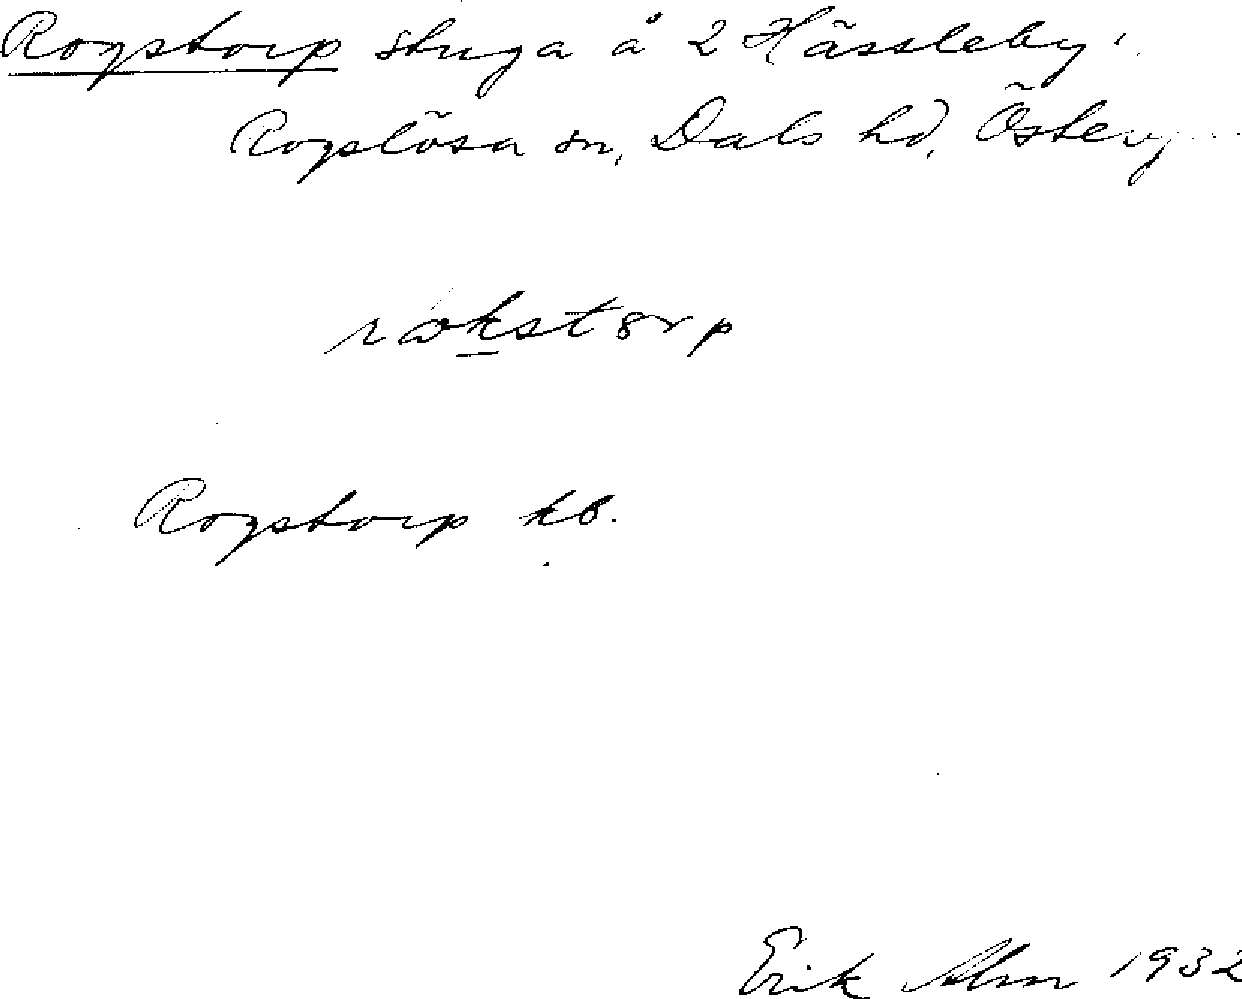 Rogstorp stuga å 2 Hässleby
Rogslösa sn, Dals hd, Österg
Rogstorp kb.
Erik Alm 1932